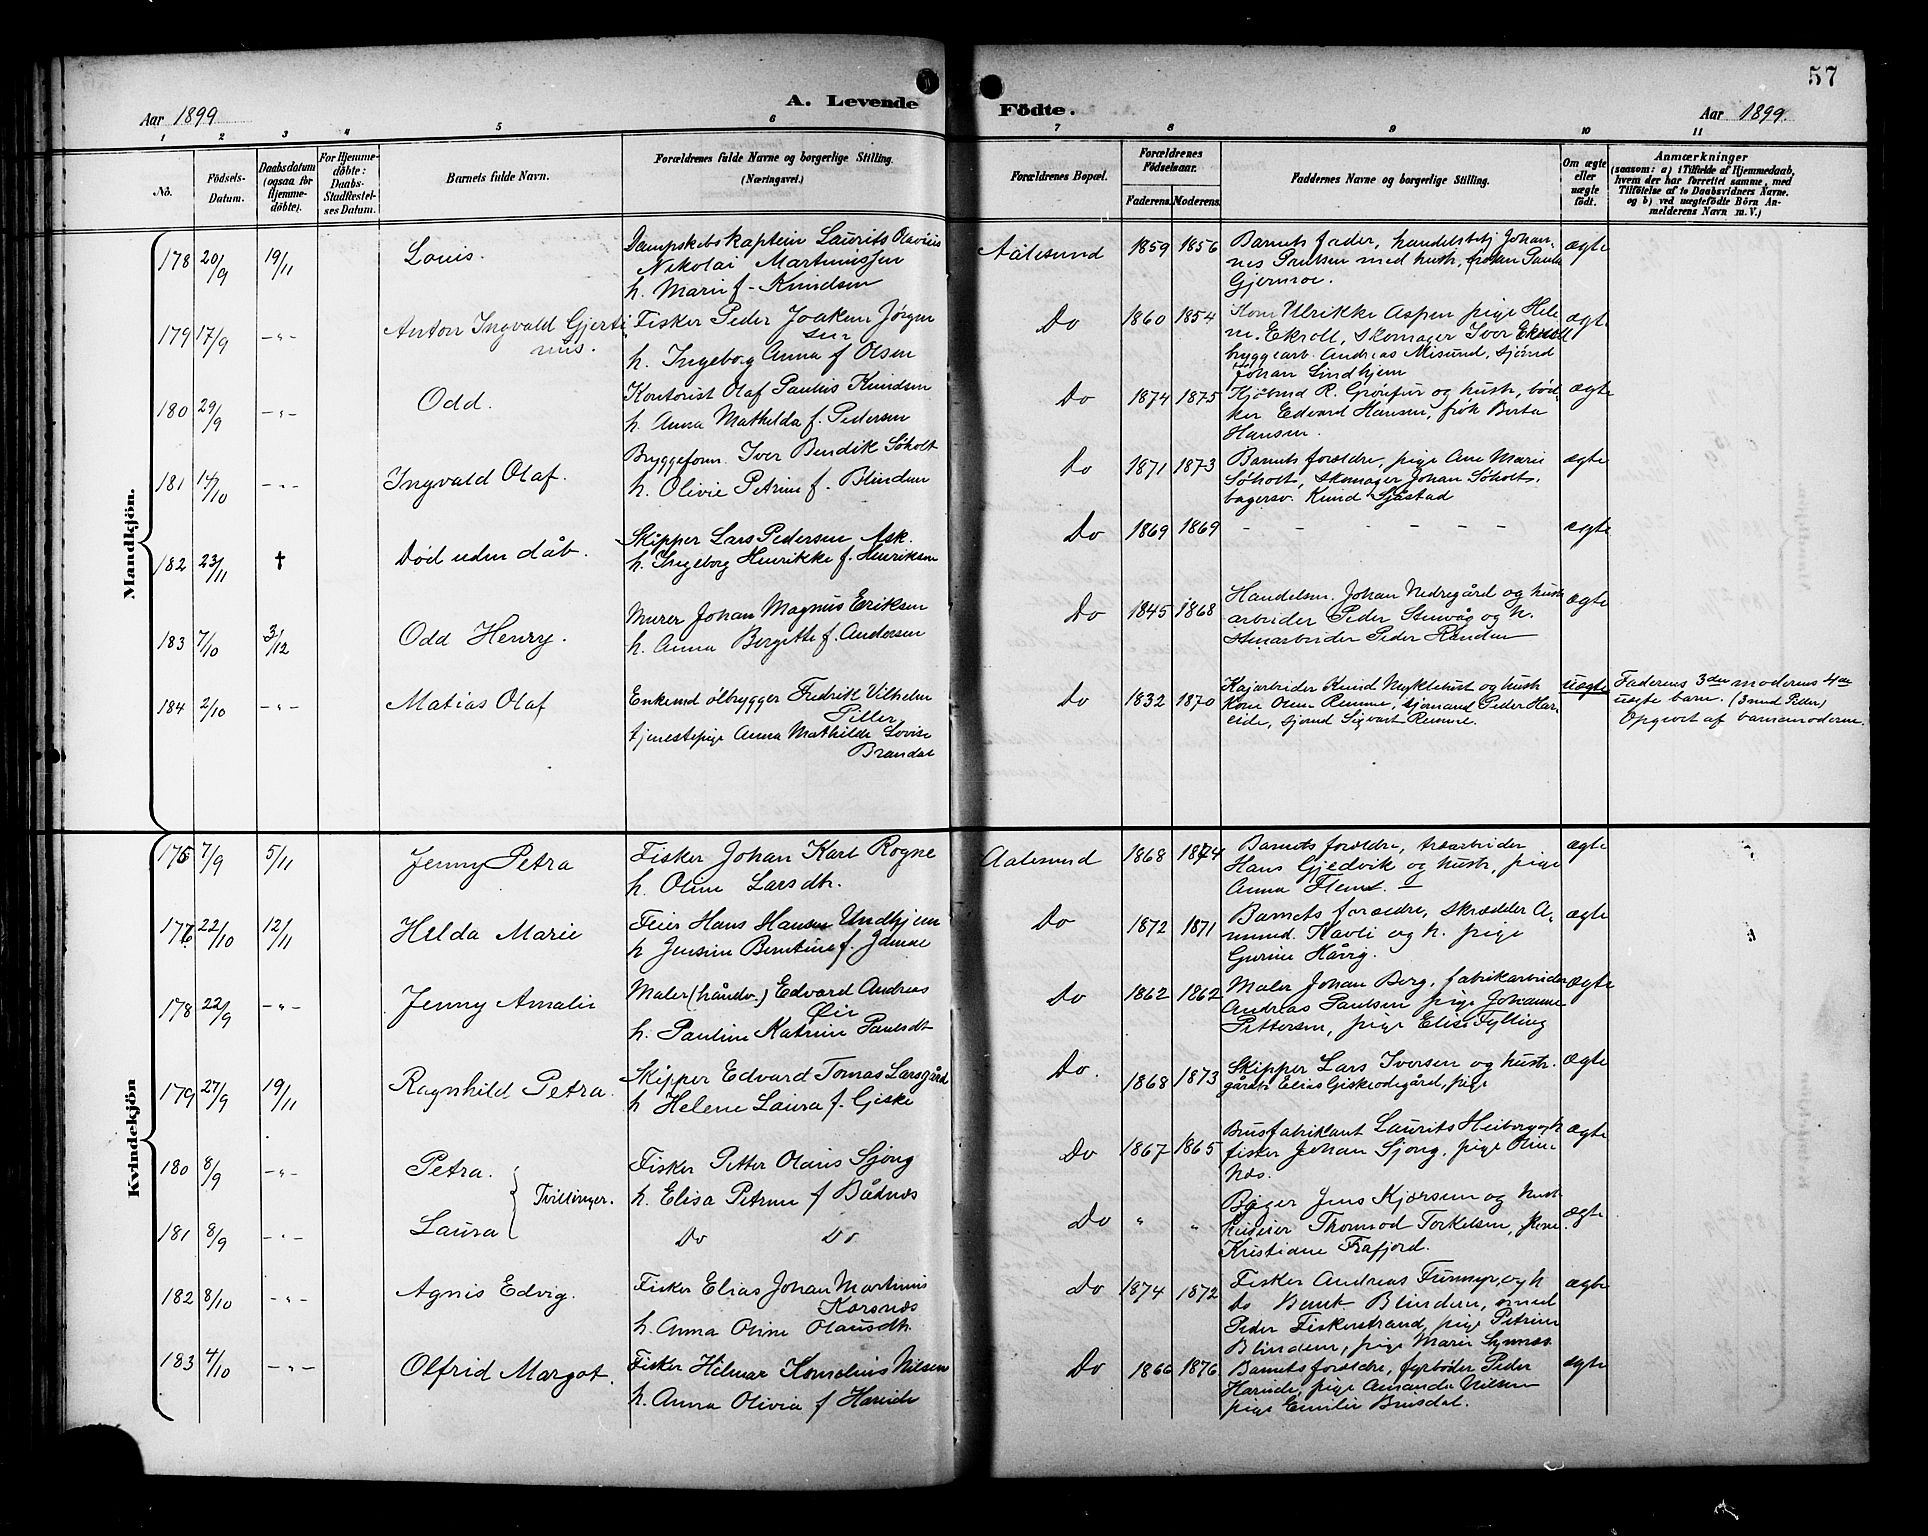 57
A. Levende
Födte.
Aar 1899
Aar 1899.
1 2 3 4 5 6 7 8 9 10 11
No.
Födsels-
Datum.
Daabsdatum
(ogsaa for
Hjemme-
döbte).
For Hjemme-
döbte:
Daabs-
Stadfæstel-
ses Datum.
Barnets fulde Navn.
Forældrenes fulde Navne og borgerlige Stilling.
(Næringsvei.)
Forældrenes Bopæl.
Forældrenes
Födselsaar.
Faderens. Moderens.
Faddernes Navne og borgerlige Stilling.
Om ægte
eller
uægte
födt.
Anmærkninger
(saasom: a) i Tilfælde af Hjemmedaab,
hvem der har forrettet samme, med
Tilföielse af to Daabsvidners Navne.
og b) ved uægtefödte Börn An-
melderens Navn m. V.)
Mandkjön.
178 20/9 19/11 Louis.
Dampskibskaptein Laurits Olavius
Nikolai Martinussen
h. Marie f. Knudsen
Aalesund 1859 1856
Barnets fader, handelsbetj Johan-
nes Paulsen med hustr,
Gjermoe.
ægte
179 17/9 -"- Anton Ingvald Gjerti
nus.
Fisker Peder Joakim Jørgen
sen
h. Ingeborg Anna f Olsen
Do 1860 1854
Kone Ulrikke Aspen pige Hele
ne Ekroll, skomager Iver Ekroll
byggearb. Andreas Misund, sjømd
Johan Lindhjem
ægte
180 29/9 -"- Odd.
Kontorist Olaf Paulus Knudsen
h. Anna Mathilda f. Pedersen
Do 1874 1875
Kjøbmd R. og hustr, bød
ker Edvard Hansen, frøk Berta
Hansen.
ægte
181 14/10 -"- Ingvald Olaf.
Byggeform. Iver Bendik Søholt
h. Olivie Petrine f. Blindem
Do 1871 1873
Barnets forældre, pige Ane Marie
Søholt, skomager Johan Søholt,
bagersv. Knud Sjåstad
ægte
182 23/11 † Død uden dåb.
Skipper Lars Pedersen Ask.
h. Ingeborg Henrikke f. Henriksen
Do 1869 1869 - - - - - - - ægte
183 7/10 3/12 Odd Henry.
Murer Johan Magnus Eriksen
h. Anna Bergitte f. Andersen
Do 1845 1868
Handelsm. Johan Nedregård og hustr
arbeider Peder Stenvåg og h.
Stenarbeider Peder Randen
ægte
184 2/10 -"- Matias Olaf
Enkemd ølbrygger Fredrik Vilhelm
Piller
tjenestepige Anna Mathilde Lovise
Brandal
Do 1832 1870
Kajarbeider Knud Myklebust og hustr
Kone Oline Remme, sjømand Peder Har-
eide, sjømd Sigvart Remme.
uægte
Faderens 3die moderens 4de
uægte barn. (3 med Piller)
Opgivet af barnemoderen.
Kvindekjön
176 7/9 5/11 Jenny Petra
Fisker Johan Karl Rogne
h. Oline Larsdtr.
Aalesund 1868 1874
Barnets forældre, træarbeider
Hans Gjedvik og hustr, pige
Anna Flem.
ægte
177 22/10 12/11 Hilda Marie
Feier Hans Hansen Undhjem
h Jensine Berntine f.
Do 1872 1871
Barnets forældre, skrædder A-
mund. Havli og h. pige
Gurine
ægte
178 22/9 -"- Jenny Amalie
Maler (håndv.) Edvard Andreas
Øie
h. Pauline Katrine Paulsdt
Do 1862 1862
Maler Johan Berg, fabrikarbeider
Andreas Paulsen pige Johanne
Pettersen, pige Elise Fylling
ægte
179 27/9 19/11 Ragnhild Petra.
Skipper Edvard Tomas Larsgård
h Helene Laura f. Giske
Do. 1868 1873
Skipper Lars Iversen og hustr.
gårdb. Elias Giskeødegård, pige
ægte
180 8/9 -"- Petra. Tvillinger.
Fisker Petter Olaus Sjong
h. Elisa Petrine f Bådnes
Do 1867 1865
Brusfabrikant Laurits Heiberg og h
fisker Johan Sjong, pige Oline
Næs.
ægte
181 8/9 -"- Laura
Do Do
Do " "
Bager Jens Kjærsem og hustr
Thormod Torkelsen, pige
Kristiane Frafjord.
ægte
182 8/10 -"- Agnis Edvig.
Fisker Elias Johan Martinus
Korsnæs
h. Anna Oline Olausdtr.
Do 1874 1872
Fisker Andreas Furmyr, og h
do Bernt Blindem, smed
Peder Fiskerstrand, pige Petrine
Blindem, pige Marie
ægte
183 4/10 -"- Olfrid Margot.
Fisker Hilmar Kornelius Nilsen
h. Anna Olivia f Hareide
Do 1866 1876
Barnets forældre, fyrbøder Peder
Hareide, pige Amanda Nilsen
pige Emilie Brusdal.
ægte